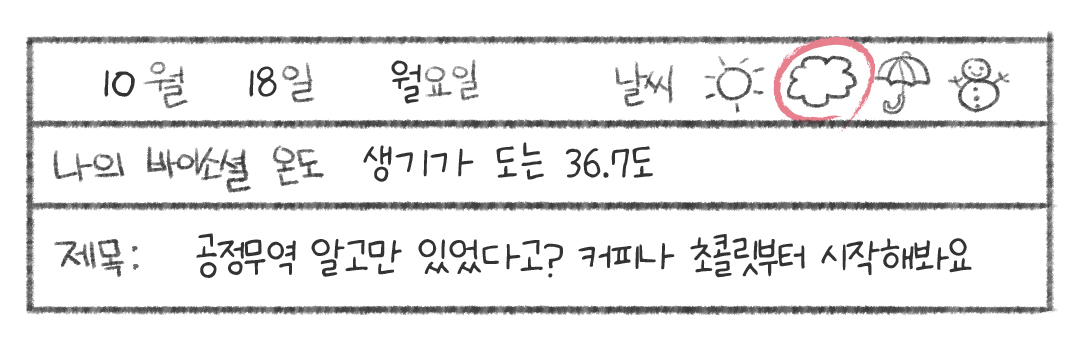 10월 18일 월요일 날씨
나의 바이소셜 온도 생기가 도는 36.7도
제목: 공정무역 알고만 있었다고? 커피나 초콜릿부터 시작해봐요